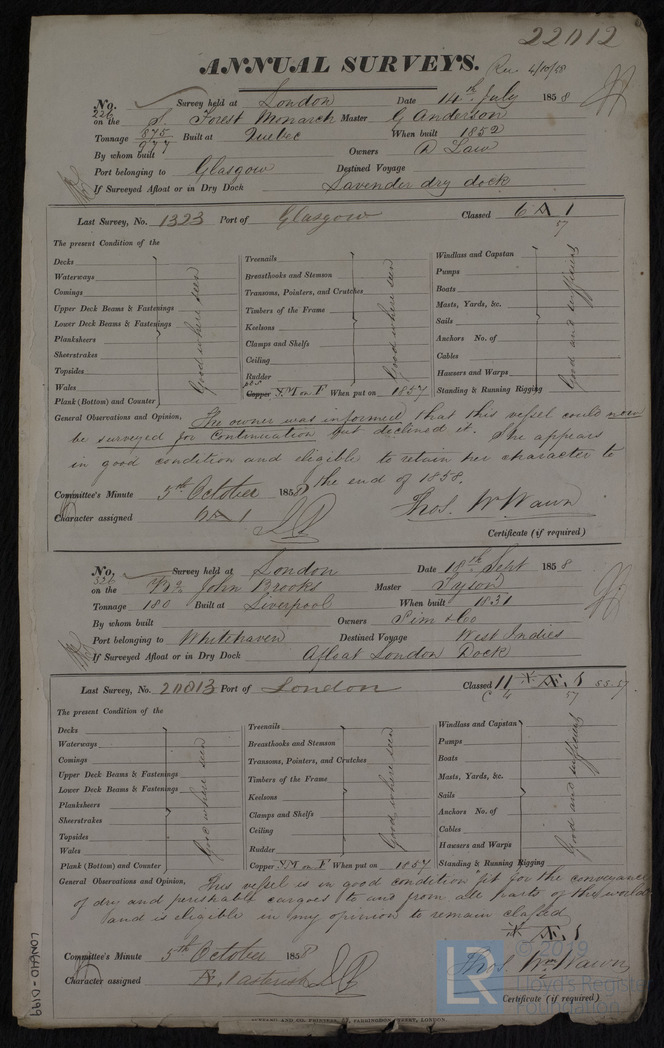 22012
ANNUAL SURVEYS. Rec. 4/10/58
No. Survey held at London Date 14th July 1858
226 on the S. Forest Monarch Master G Anderson
Tonnage 875 / 977 Built at Quebec When built 1852
By whom built Owners D Law
Port belonging to Glasgow Destined Voyage
If Surveyed Afloat or in Dry Dock Lavender dry dock
Last Survey, No. 1323 Port of Glasgow Classed 6 A 1
57
The present Condition of the
Decks
Waterways
Comings
Upper Deck Beams & Fastenings
Lower Deck Beams & Fastenings
Planksheers
Sheerstrakes
Topsides
Wales
Plank (Bottom) and Counter
Good where seen
Treenails
Breasthooks and Stemson
Transoms, Pointers, and Crutches
Timbers of the Frame
Keelsons
Clamps and Shelfs
Ceiling
Rudder
Copper Y.M on F When put on 1857
Good where seen
Windlass and Capstan
Pumps
Boats
Masts, Yards, &c.
Sails
Anchors No. of
Cables
Hawsers and Warps
Standing & Running Rigging
Good and sufficient
General Observations and Opinion, The owner was informed that this vessel could now
be surveyed for Continuation but declined it. She appears
in good condition and eligible to retain her character to
the end of 1858.
Committee's Minute 5th October 1858
Thos. Wm Wawn
Character assigned 6 A 1
Certificate (if required)
No. Survey held at London Date 18th Sept 1858
on the Bn John Brooks Master Tyson
Tonnage 180 Built at Liverpool When built 1831
By whom built Owners Pim & Co
Port belonging to Whitehaven Destined Voyage West Indies
If Surveyed Afloat or in Dry Dock Afloat London Dock
Last Survey, No. 20013 Port of London Classed 11 * Æ 1 55.57
C 4 57
The present Condition of the
Decks
Waterways
Comings
Upper Deck Beams & Fastenings
Lower Deck Beams & Fastenings
Planksheers
Sheerstrakes
Topsides
Wales
Plank (Bottom) and Counter
Good where seen
Treenails
Breasthooks and Stemson
Transoms, Pointers, and Crutches
Timbers of the Frame
Keelsons
Clamps and Shelfs
Ceiling
Rudder
Copper Y.M on F When put on 1857
Good where seen
Windlass and Capstan
Pumps
Boats
Masts, Yards, &c.
Sails
Anchors No. of
Cables
Hawsers and Warps
Standing & Running Rigging
Good and sufficient
General Observations and Opinion, This vessel is in good condition fit for the conveyance
of dry and perishable cargoes to and from all parts of the world
and is eligible in my opinion to remain classed
* Æ 1
Committee's Minute 5th October 1858
Thos. Wm Wawn
Character assigned Æ 1 asterisk
Certificate (if required)
LON640-0199
LR © 2019
Lloyd's Register
Foundation